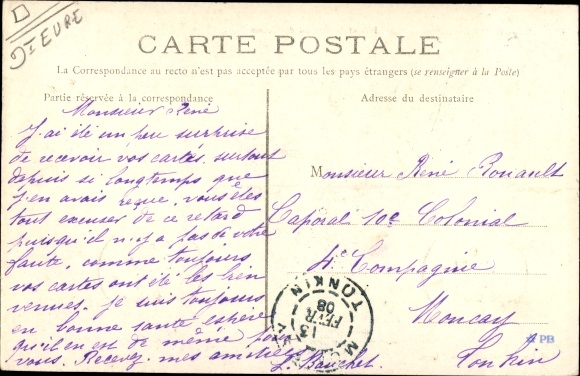 Dt EURE
CARTE POSTALE
La Correspondance au recto n'est pas acceptée par tous les pays étrangers (se renseigner à la Poste)
Partie réservée à la correspondance
Adresse du destinataire
Monsieur René
J'ai été un peu surprise
de recevoir vos cartes surtout
depuis si longtemps que
j'en avais reçue, vous êtes
tout excuser de ce retard
puisqu'il n'y a pas de votre
faute, comme toujours
vos cartes ont été les bien
venues. Je suis toujours
en bonne santé, espère
qu'il en est de même pour
vous. Recevez mes amitiés
Monsieur René Rouault
Caporal 10e Colonial
4e Compagnie
Moncay
Tonkin
TONKIN
13
FEVR
08
PB